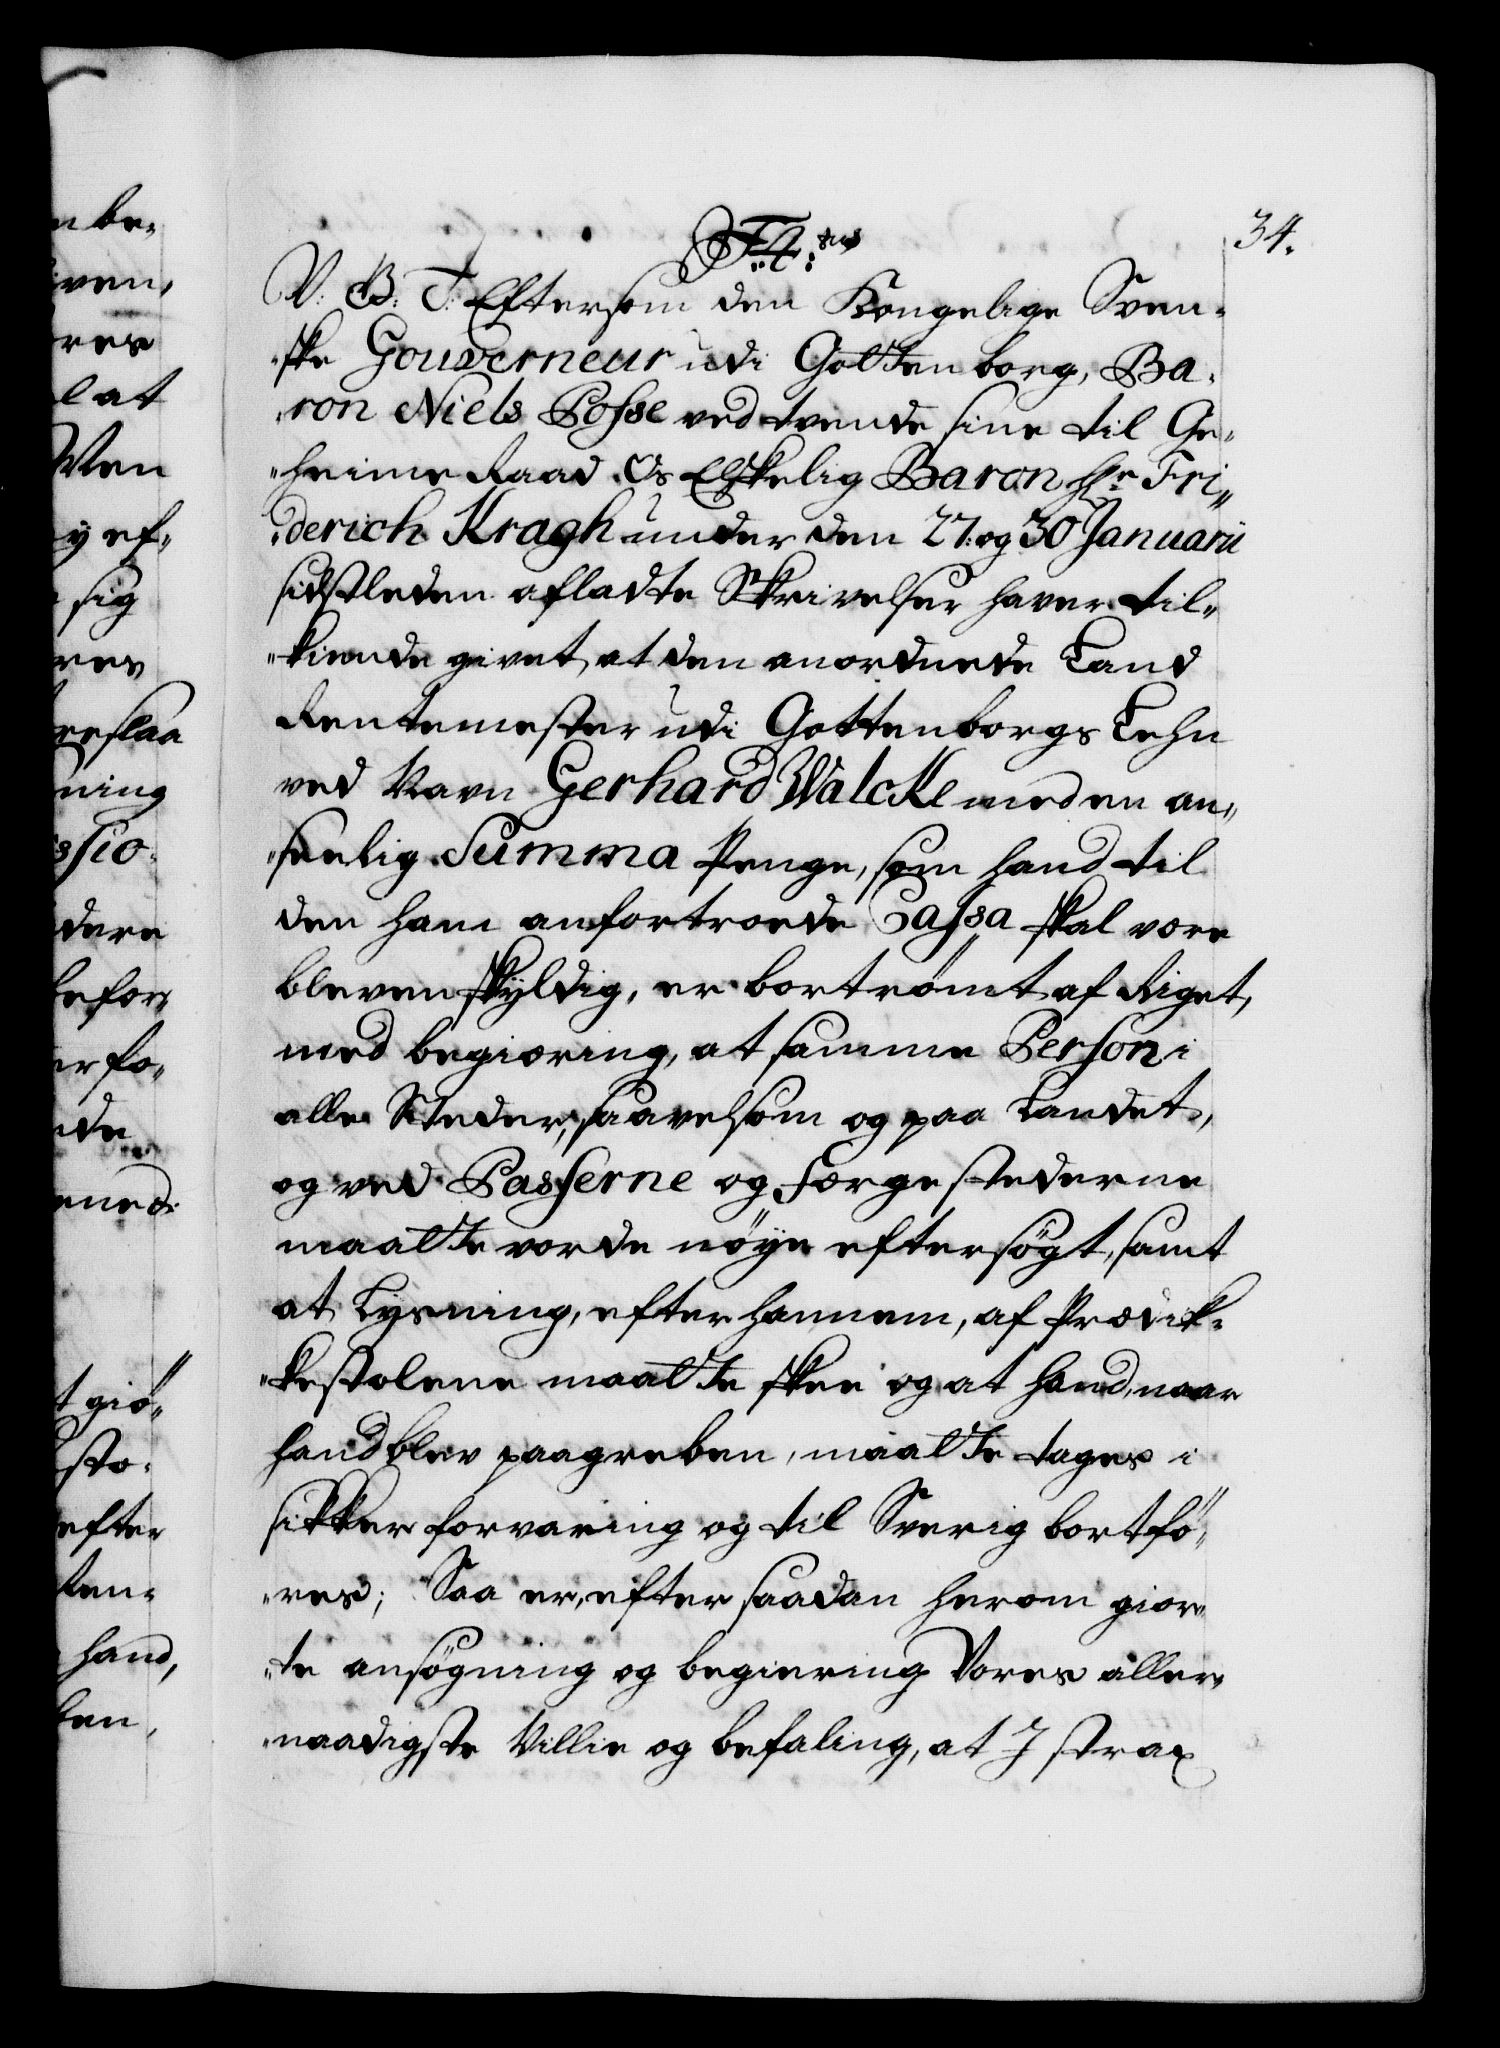 34.
F4.tus
V: G: T: Eftersom den Kongelige Sven-
-ske Gouverneur udi Gottenborg, Ba-
-ron Niels Posse ved tvende sine til Ge-
-heimeRaad Os Elskelig Baron Hr Fri-
-derich Kragh under den 27. og 30 Januarii
sidstleden afladte Skrivelser haver til-
-kiende givet, at den anordnede Land
Rentemester udi Gottenborgs Lehn
ved Navn Gerhard Walcke med en an-
-seelig Summa Penge, som hand til
den ham anfortroede Cassa skal være
bleven skyldig, er bortrømt af Riget,
med begiæring, at samme Person i
alle Stæder, saavelsom og paa Landet,
og ved Passerne og Færgestederne
maatte vorde nøye eftersögt, samt
at Lysning, efter hannem, af Prædik-
-kestolene maatte skee og at hand, naar
hand blev paagreben, maatte tages i
sikker forvaring og til Sverig bortfö-
-res; Saa er, efter saadan herom gior-
-te ansögning og begiering Vores aller-
-naadigste Villie og befaling, at I strax
n be-
ven,
res
l at
Ven
y ef-
sig
res
reslaa
ning
ssio-
dere
befor-
er fo-
de
ened:
t giö-
sto-
efter
ten-
hand,
ten,